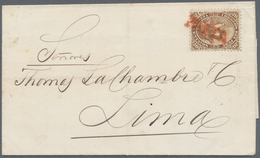 Señores
Thomas LaChambre & C
Lima